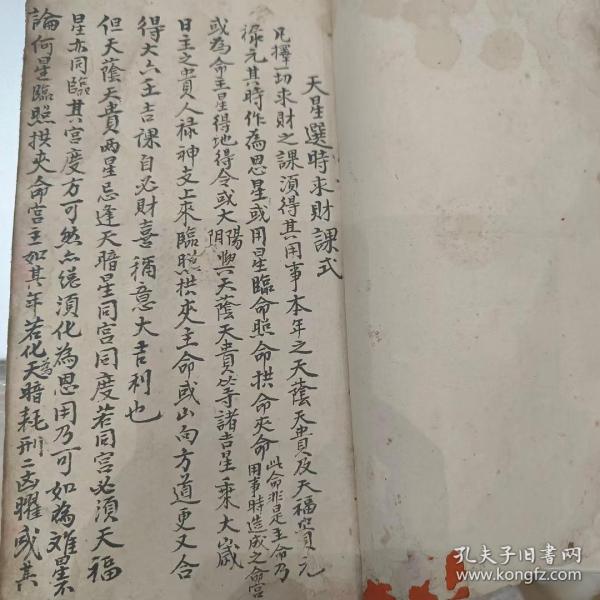 天星選時求財課式
凡擇一切求財之課須得其用事本年之天蔭天貴及天福貴元
祿元其時作為恩星或用星臨命照命拱命夾命此命非是主命乃用事時造成之命宮
或為命主星得地得令或太陽太陰與天蔭天貴等諸吉星乘大歲
日主之貴人祿神支上來臨照拱夾主命或山向方道更又合
得大六壬吉課自必財喜稱意大吉利也
但天蔭天貴兩星忌逢天暗星同宮同度若同宮必須天福
星亦同臨其宮度方可然亦總須化為恩用乃可如為难星不
論何星臨照拱夾命宮主如其年若化為天暗耗刑三凶曜或其
孔夫子旧書网
www.kongfz.com